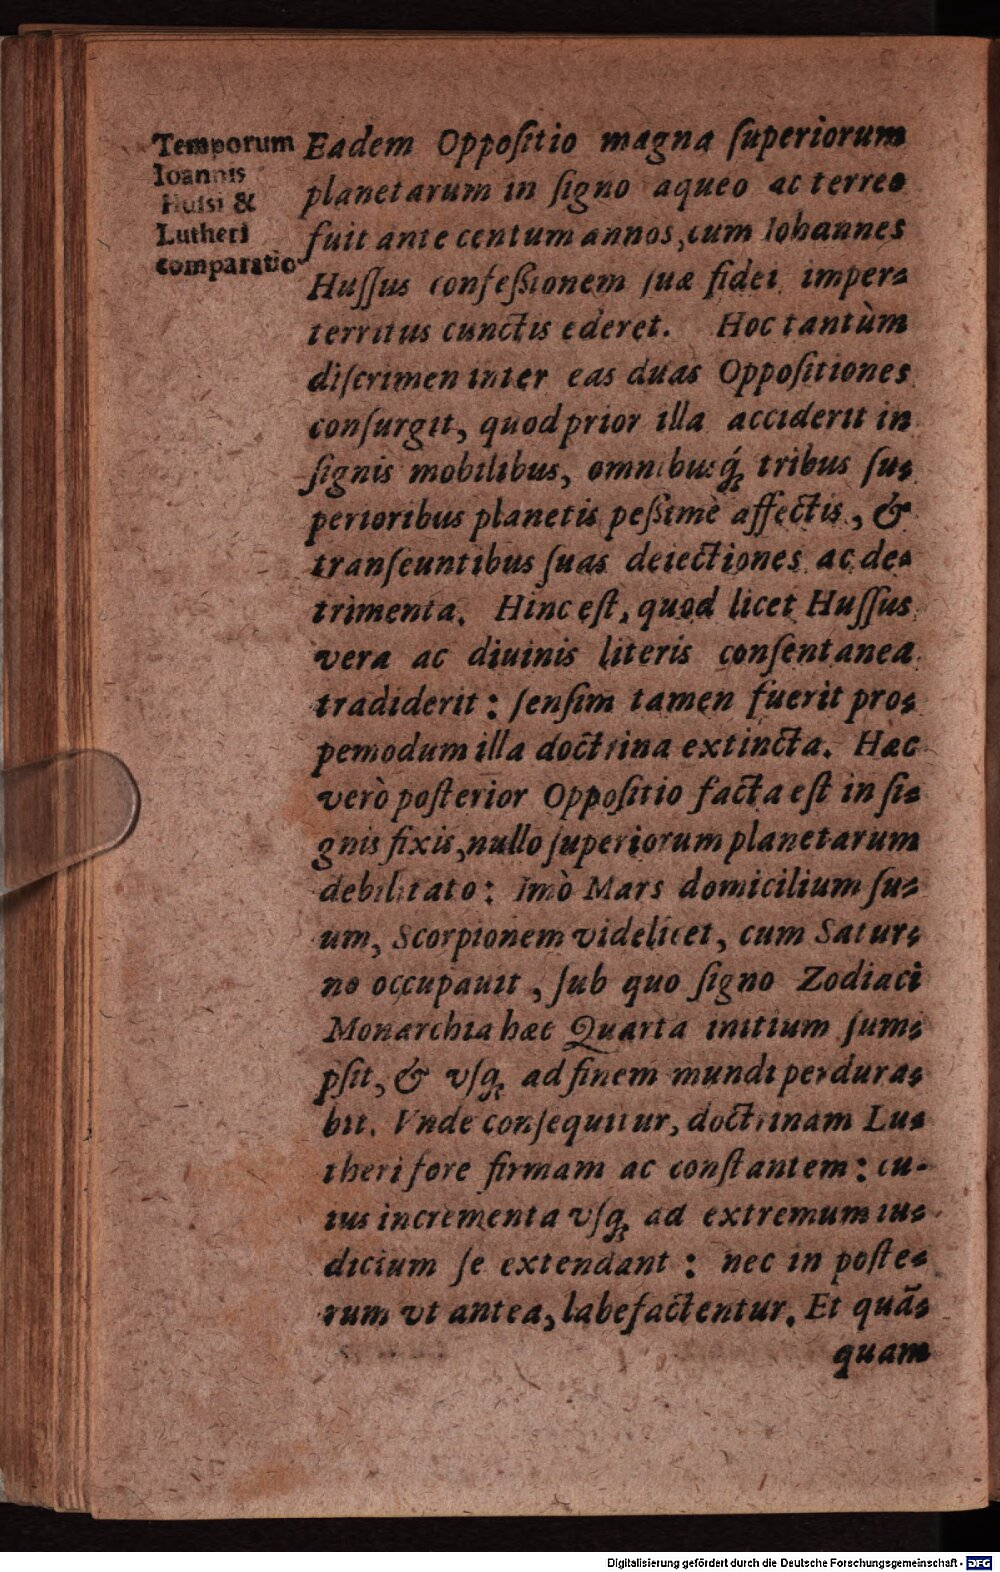 Temporum
Ioannis
Hussi &
Lutheri
comparatio
Eadem Oppoſitio magna ſuperiorum
planetarum in ſigno aqueo ac terreo
fuit ante centum annos, cum Iohannes
Huſſus confeßionem ſuæ fidei imper⸗
territus cunctis ederet. Hoc tantùm
diſcrimen inter eas duas Oppoſitiones
conſurgit, quod prior illa acciderit in
ſignis mobilibus, omnibusq́ꝫ tribus ſu⸗
perioribus planetis peßimè affectis, &
tranſeuntibus ſuas deiectiones ac de⸗
trimenta. Hinc eſt, quod licet Huſſus
vera ac diuinis literis conſentanea
tradiderit: ſenſim tamen fuerit pro⸗
pemodum illa doctrina extincta. Hæc
verò poſterior Oppoſitio facta eſt in ſi⸗
gnis fixis, nullo ſuperiorum planetarum
debilitato: Imò Mars domicilium ſu⸗
um, Scorpionem videlicet, cum Satur⸗
no occupauit, ſub quo ſigno Zodiaci
Monarchia hæc Quarta initium ſum⸗
pſit, & vſqꝫ ad finem mundi perdura⸗
bit. Vnde conſequitur, doctrinam Lu⸗
theri fore firmam ac conſtantem: cu-
ius incrementa vſqꝫ ad extremum iu⸗
dicium ſe extendant: nec in poſte⸗
rum vt antea, labefactentur. Et quã⸗
quam
Digitalisierung gefördert durch die Deutsche Forschungsgemeinschaft - DFG